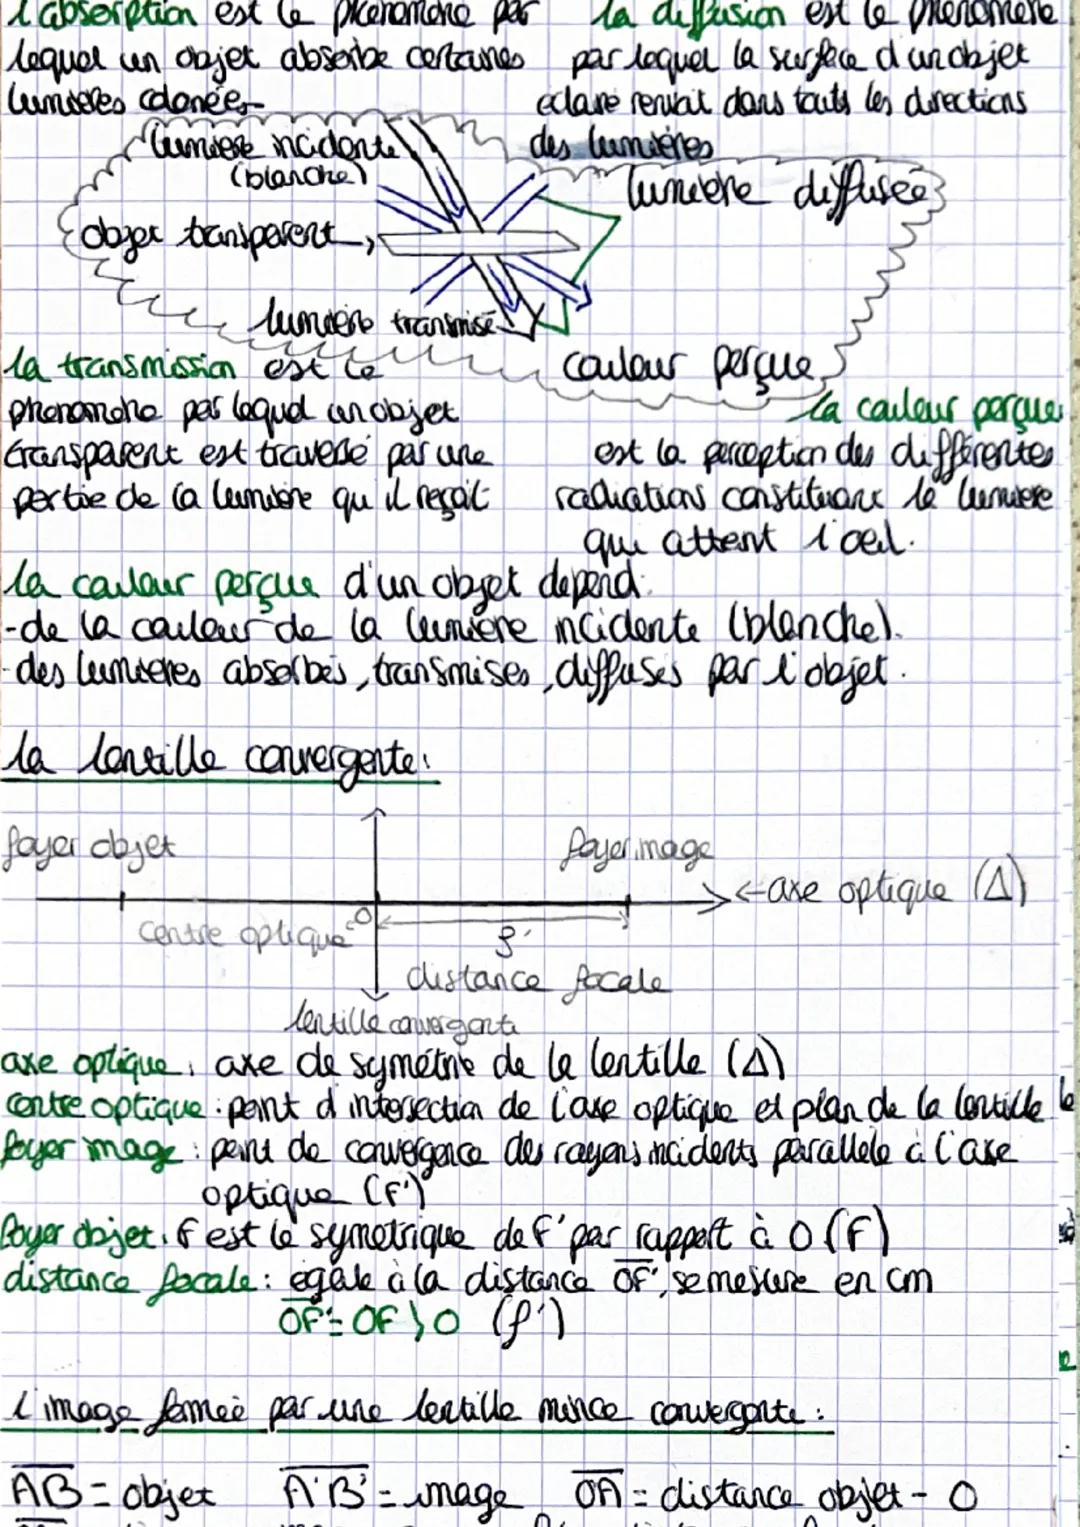 l'absorption est le phénomène par
lequel un objet absorbe certaines
lumières colorées
la diffusion est le phénomène
par lequel la surface d'un objet
eclairé renvoit dans touts les directions
des lumières
lumière incidente
(blanche)
lumière diffusée
objet transparent
lumière transmise
couleur perçue
la transmission est le
phénomène par lequel un objet
transparent est traversé par une
partie de la lumière qu'il reçait
la couleur perçue
est la perception des différentes
radiations constituant la lumière
qui attent l'oeil.
la couleur perçue d'un objet depend:
-de la couleur de la lumière incidente (blanche).
-des lumières absorbés, transmises, diffusés par l'objet.
la lentille convergente:
foyer objet
foyer image
←axe optique (Δ)
centre optique
O
f'
distance focale
lentille convergente
axe optique: axe de symétrie de la lentille (Δ)
centre optique: point d'intersection de l'axe optique et plan de la lentille
foyer image: point de convergence des rayons incidents parallèle à l'axe
optique (F')
foyer objet: F est le symetrique de F' par rapport à O (F)
distance focale: égale à la distance OF', se mesure en cm
OF'= OF > O (f')
l'image formée par une lentille mince convergente:
AB = objet A'B' = image OA = distance objet - O